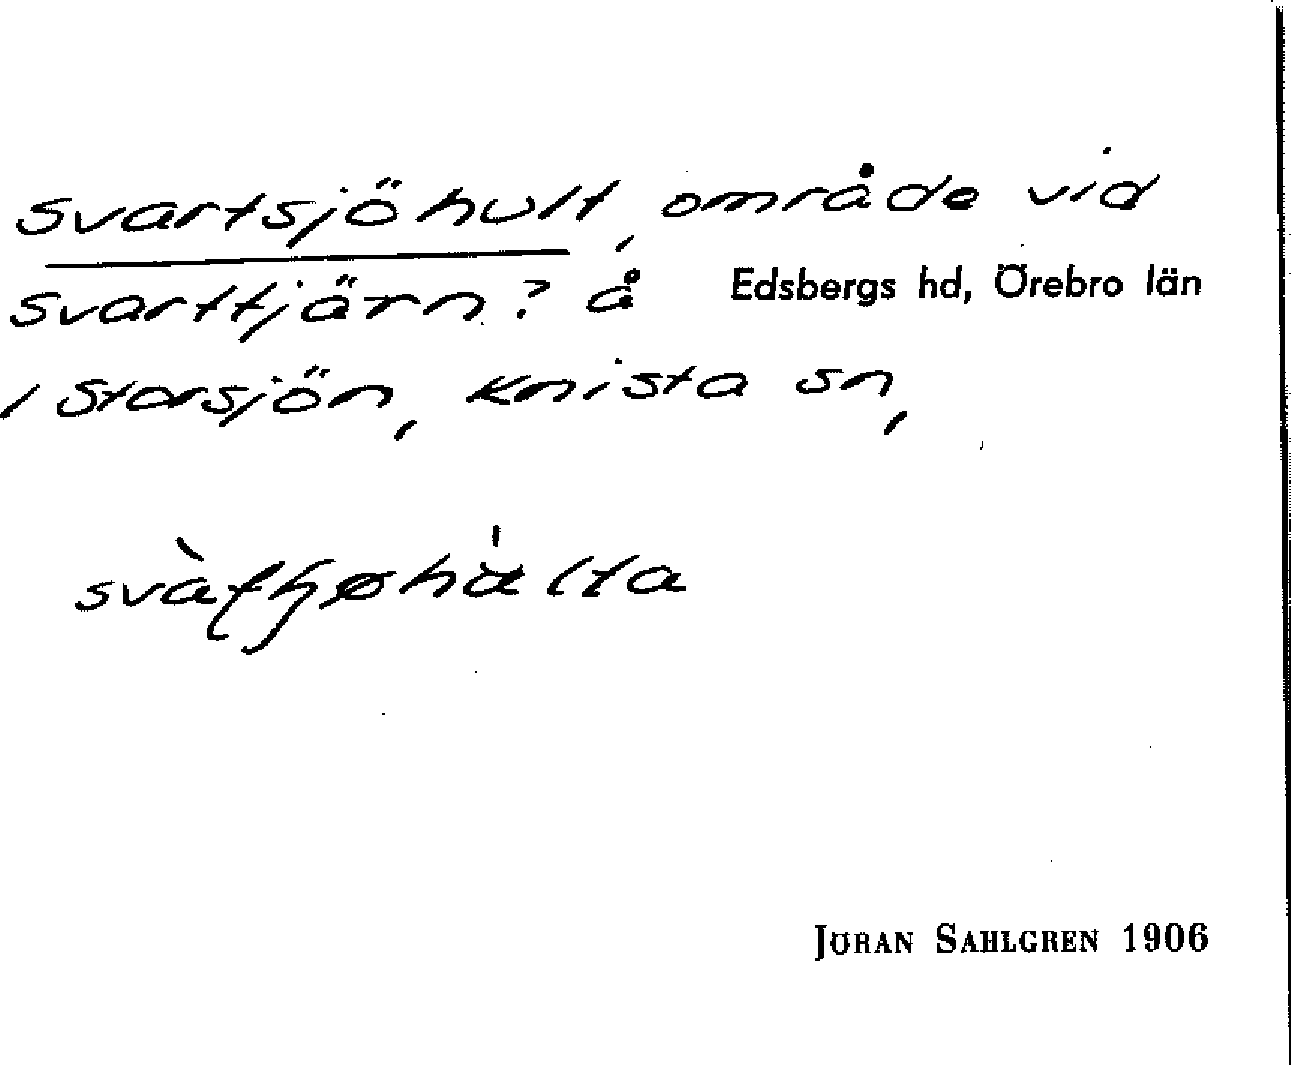 svartsjöhult, område vid
svarttjärn? å Edsbergs hd, Örebro län
i Storsjön, Knista sn,
JÖRAN SAHLGREN 1906